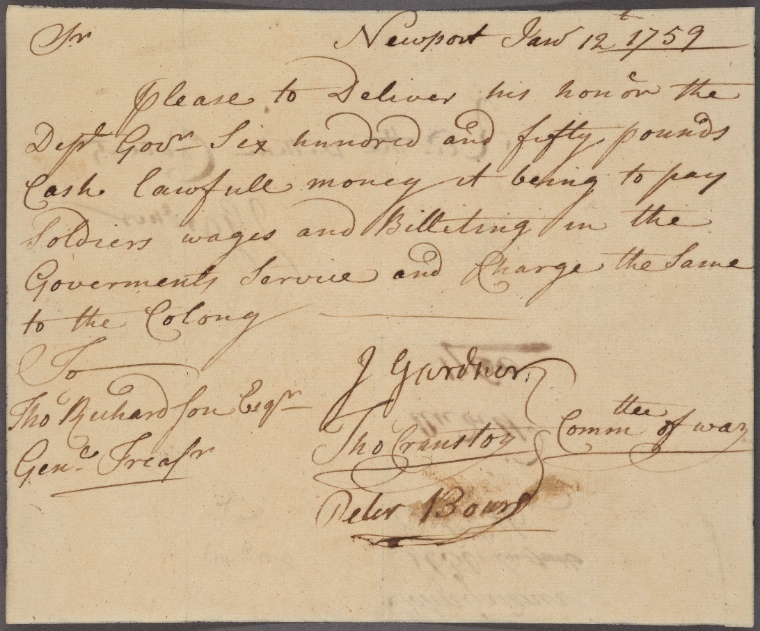 Sr Newport Janr 12t 1759
Please to Deliver his honor the
Dept Govr Six hundred and fifty pounds
Cash lawfull money it being to pay
Soldiers wages and Billiting in the
Goverments Service and Charge the Same
to the Colony
To
Tho Richardson Esqr
Genl Treasr
J Gardner
Tho Cranston
Peter Bours
Commttee of war